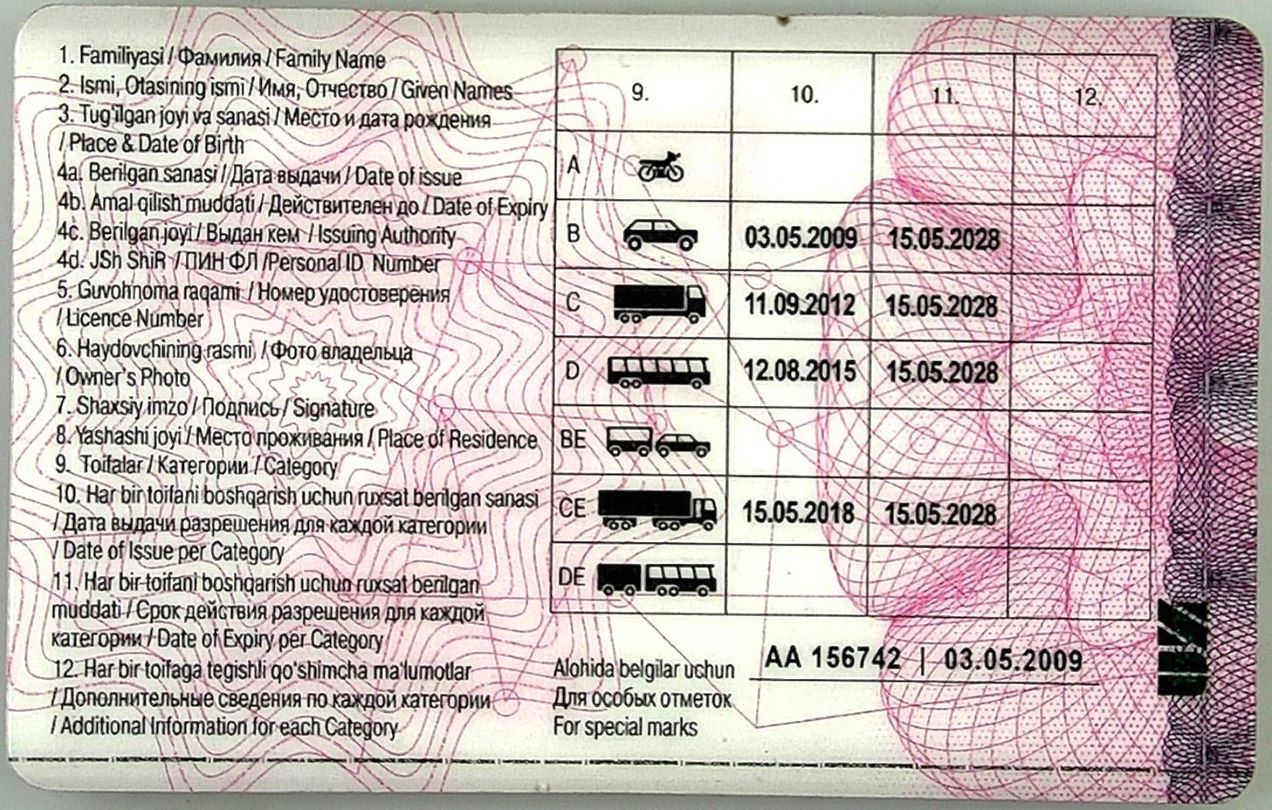 1. Familiyasi / Фамилия / Family Name
2. Ismi, Otasining ismi / Имя, Отчество / Given Names
3. Tug'ilgan joyi va sanasi / Место и дата рождения
/ Place & Date of Birth
4a. Berilgan sanasi / Дата выдачи / Date of issue
4b. Amal qilish muddati / Действителен до / Date of Expiry
4c. Berilgan joyi / Выдан кем / Issuing Authority
4d. JSh ShiR / ПИН ФЛ /Personal ID Number
5. Guvohnoma raqami / Номер удостоверения
/ Licence Number
6. Haydovchining rasmi / Фото владельца
/ Owner's Photo
7. Shaxsiy imzo / Подпись / Signature
8. Yashashi joyi / Место проживания / Place of Residence
9. Toifalar / Категории / Category
10. Har bir toifani boshqarish uchun ruxsat berilgan sanasi
/ Дата выдачи разрешения для каждой категории
/ Date of Issue per Category
11. Har bir toifani boshqarish uchun ruxsat berilgan
muddati / Срок действия разрешения для каждой
категории / Date of Expiry per Category
12. Har bir toifaga tegishli qo'shimcha ma'lumotlar
/ Дополнительные сведения по каждой категории
/ Additional Information for each Category
9. 10. 11. 12.
A
B 03.05.2009 15.05.2028
C 11.09.2012 15.05.2028
D 12.08.2015 15.05.2028
BE
CE 15.05.2018 15.05.2028
DE
Alohida belgilar uchun AA 156742 | 03.05.2009
Для особых отметок
For special marks